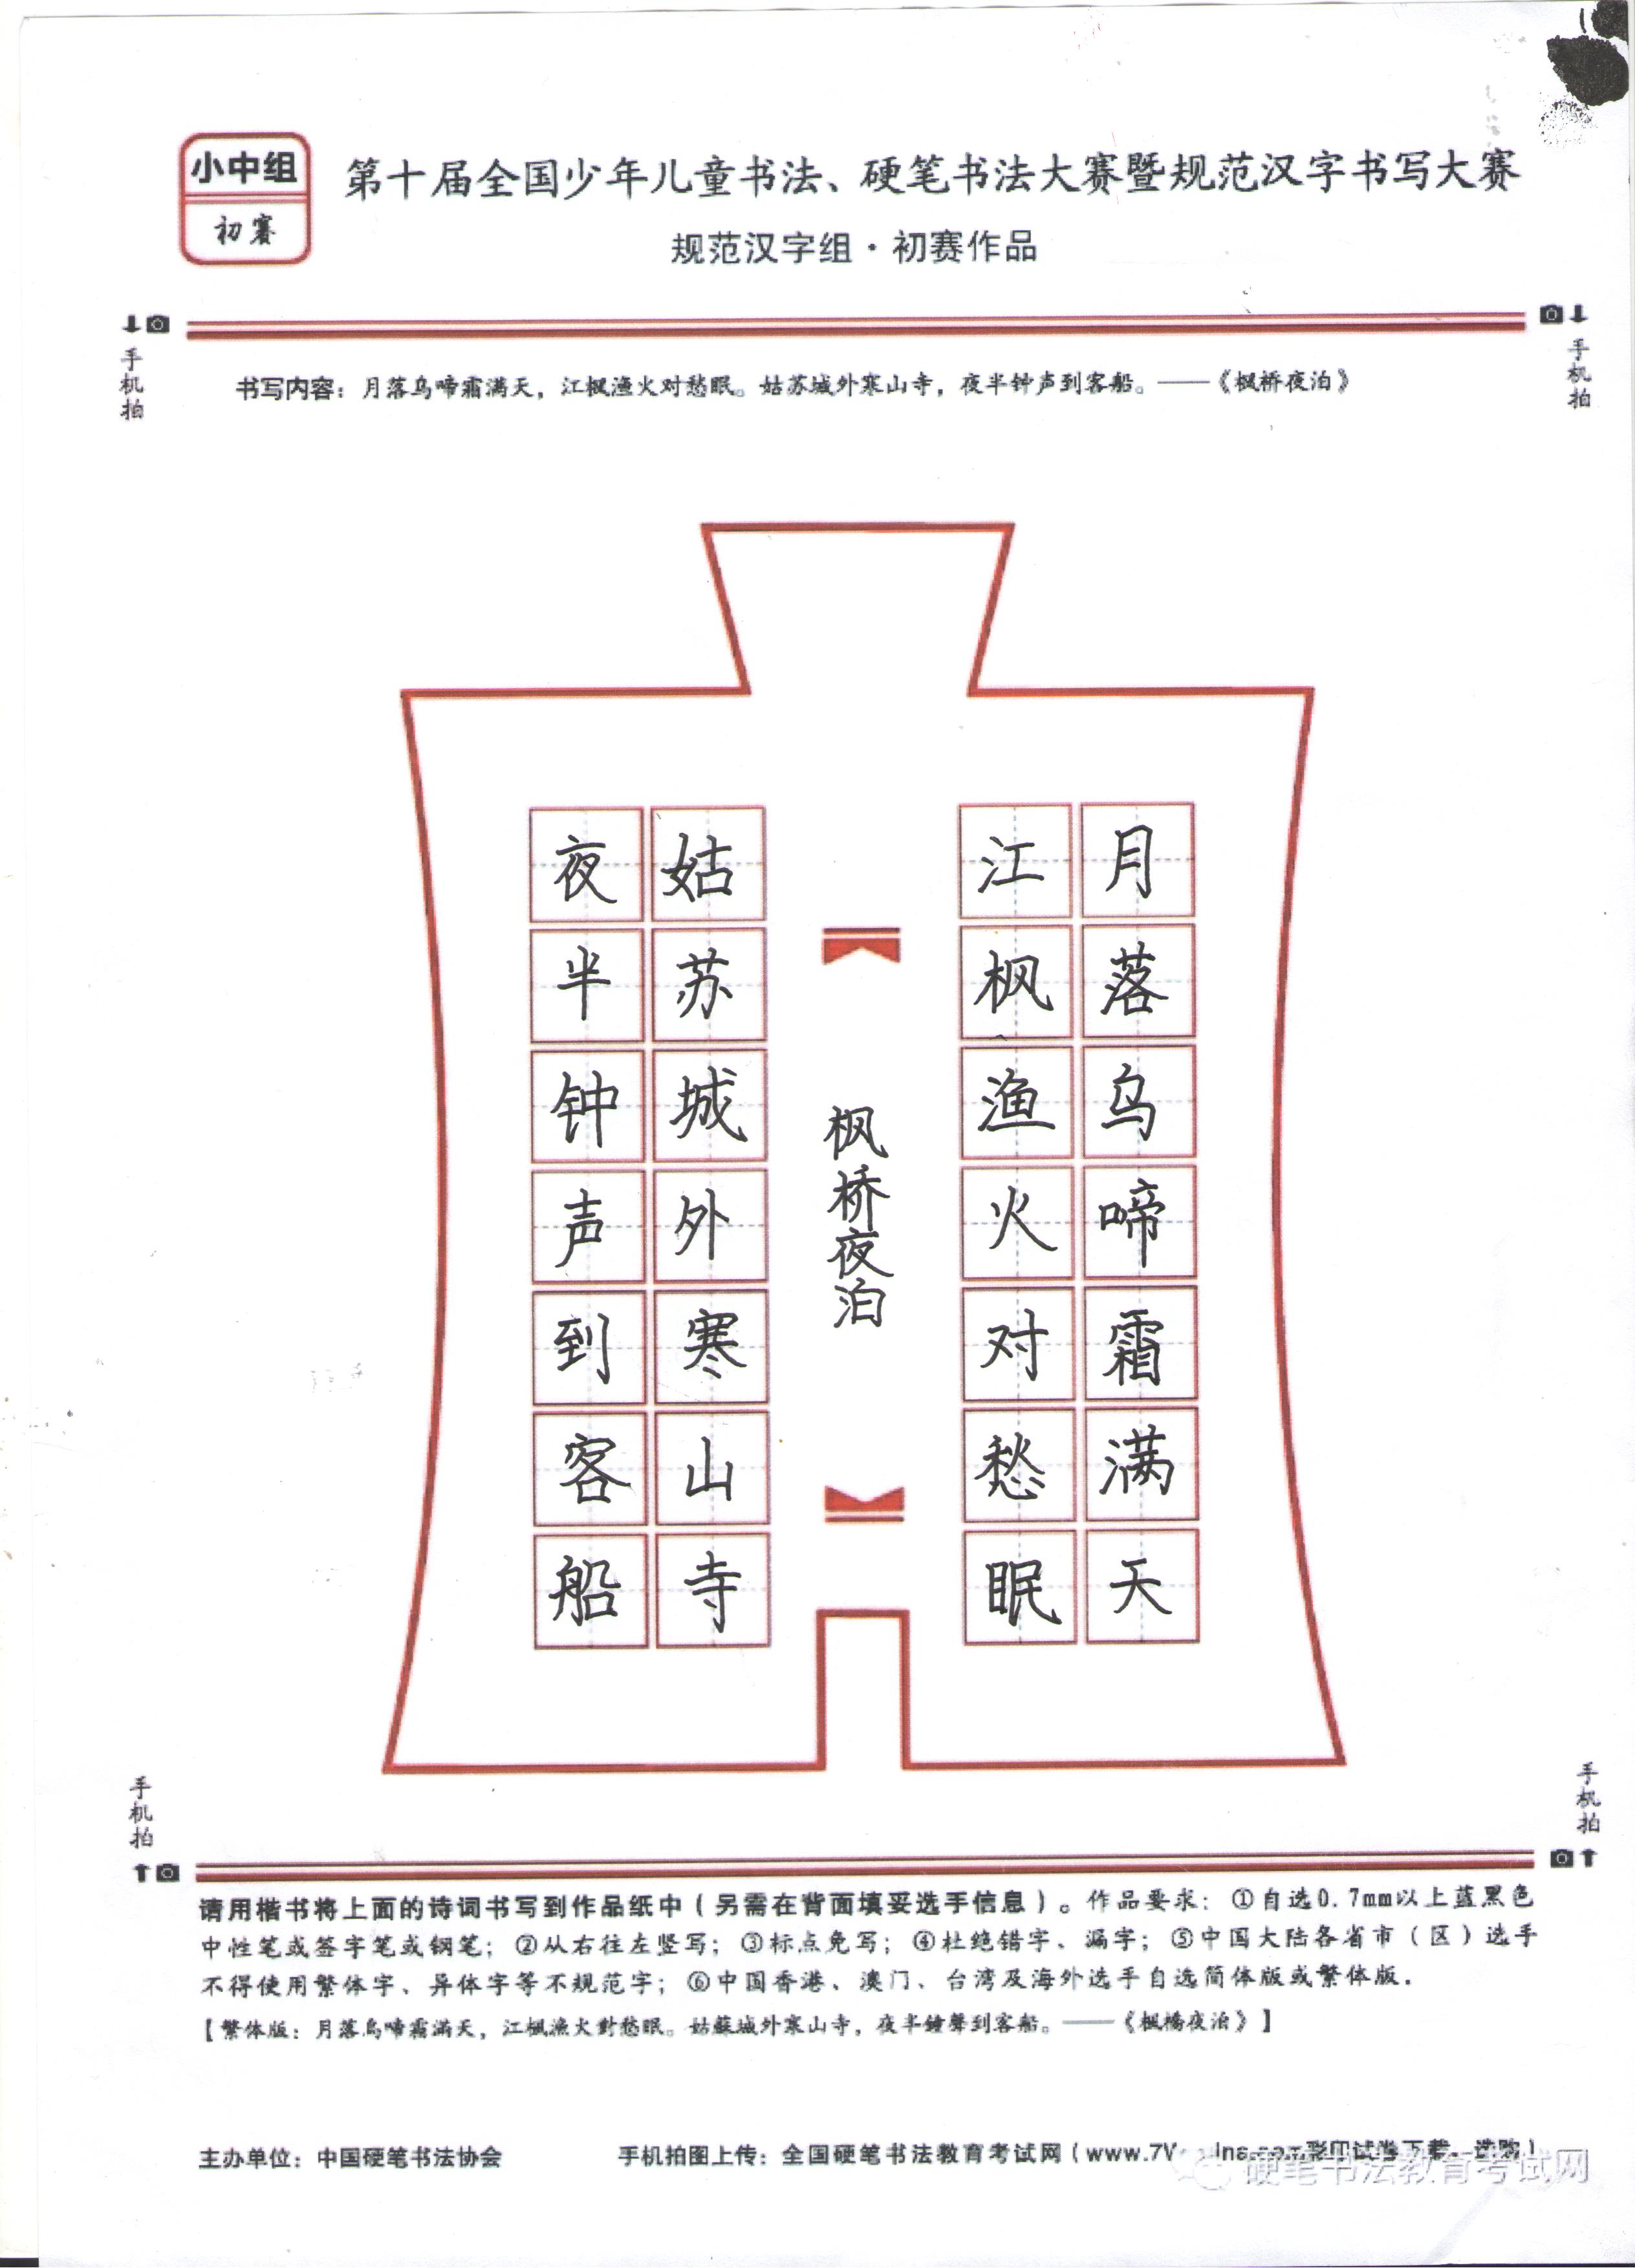 小中组
初赛
第十届全国少年儿童书法、硬笔书法大赛暨规范汉字书写大赛
规范汉字组·初赛作品
手机拍
手机拍
书写内容：月落乌啼霜满天，江枫渔火对愁眠。姑苏城外寒山寺，夜半钟声到客船。——《枫桥夜泊》
月落乌啼霜满天
江枫渔火对愁眠
枫桥夜泊
姑苏城外寒山寺
夜半钟声到客船
手机拍
手机拍
请用楷书将上面的诗词书写到作品纸中（另需在背面填妥选手信息）。作品要求：①自选0.7mm以上蓝黑色
中性笔或签字笔或钢笔；②从右往左竖写；③标点免写；④杜绝错字、漏字；⑤中国大陆各省市（区）选手
不得使用繁体字、异体字等不规范字；⑥中国香港、澳门、台湾及海外选手自选简体版或繁体版.
【繁体版：月落烏啼霜滿天，江楓漁火對愁眠。姑蘇城外寒山寺，夜半鐘聲到客船。——《楓橋夜泊》】
主办单位：中国硬笔书法协会
手机拍图上传：全国硬笔书法教育考试网（www.7V
硬笔书法教育考试网